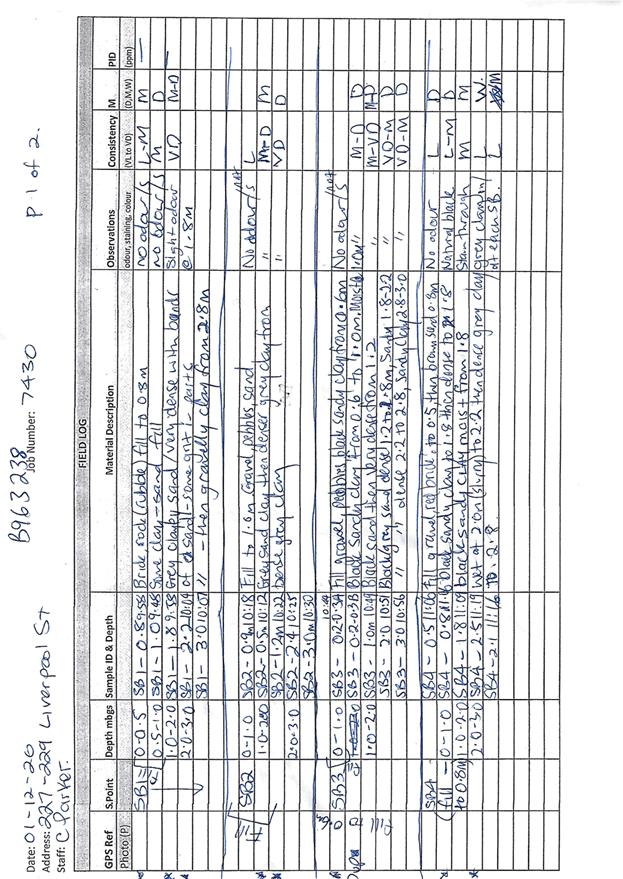 B963238
Date: 01-12-20 Job Number: 7430 P 1 of 2.
Address: 227-229 Liverpool St
Staff: C Parker.
FIELD LOG
GPS Ref S.Point Depth mbgs Sample ID & Depth Material Description Observations Consistency M PID
Photo (P) odour, staining, colour (VL to VD) (D,M,W) (ppm)
SB1 0-0.5 SB1-0.8 9:58 Brick, rock (rubble) fill to 0.8m no odour/s L-M M —
0.5-1.0 SB1-1.0 9:48 Some clay-sand fill no odour/s M D
1.0-2.0 SB1-1.8 9:58 Grey clayey sand/very dense with Slight odour VD M-D —
2.0-3.0 SB1-2.2 10:04 sand-some grit @ 1.8M
SB1-3.0 10:07 " - then gravelly clay from 2.8M
Fill SB2 0-1.0 SB2-0.9m 10:18 Fill to 1.0m Gravel, pebbles, sand No odour/s L
1.0-2.0 SB2-0.5m 10:12 Grey sand clay then denser grey clay from " M-D M
SB2-1.2m 10:22 Dense grey clay " VD D
2.0-3.0 SB2-2.4 10:25
SB2-3.0m 10:30
10:49
0.6m SB3 0-1.0 SB3-0.6-0.3A Fill gravel, pebbles black sandy clay from 0.6m No odour/s M-D D
Fill to SB3-0.2-0.3B Black Sandy clay from 0.6 to 1.0m. Moist 1.0m " M-VD M-D
Dupe 1.0-2.0 SB3-1.0m 10:49 Black sand then very dense from 1.2
SB3-2.0 10:51 Black/grey sand dense 1.2 to 1.8m, Sandy 1.8-2.2 " VD-M D
SB3-3.0 10:56 " " dense 2.2 to 2.8, Sandy clay 2.8-3.0 " VD-M D
SB4 SB4-0.5 11:06 Fill gravel, red brick, to 0.5, then brown sand 0.8m No odour L D
(fill 0-1.0 SB4-0.8 11:16 black sandy clay to 1.8 then dense to 1.8 Natural black L-M D
to 0.8m) 1.0-2.0 SB4-1.8 11:09 black sandy clay moist from 1.8 Stain through M M
2.0-3.0 SB4-2.5 11:19 Wet at 2.0m (slurry) to 2.2 then dense grey clay grey clamp in/ L W.
SB4-2.1 11:16 To 2.8 at each SB. L M